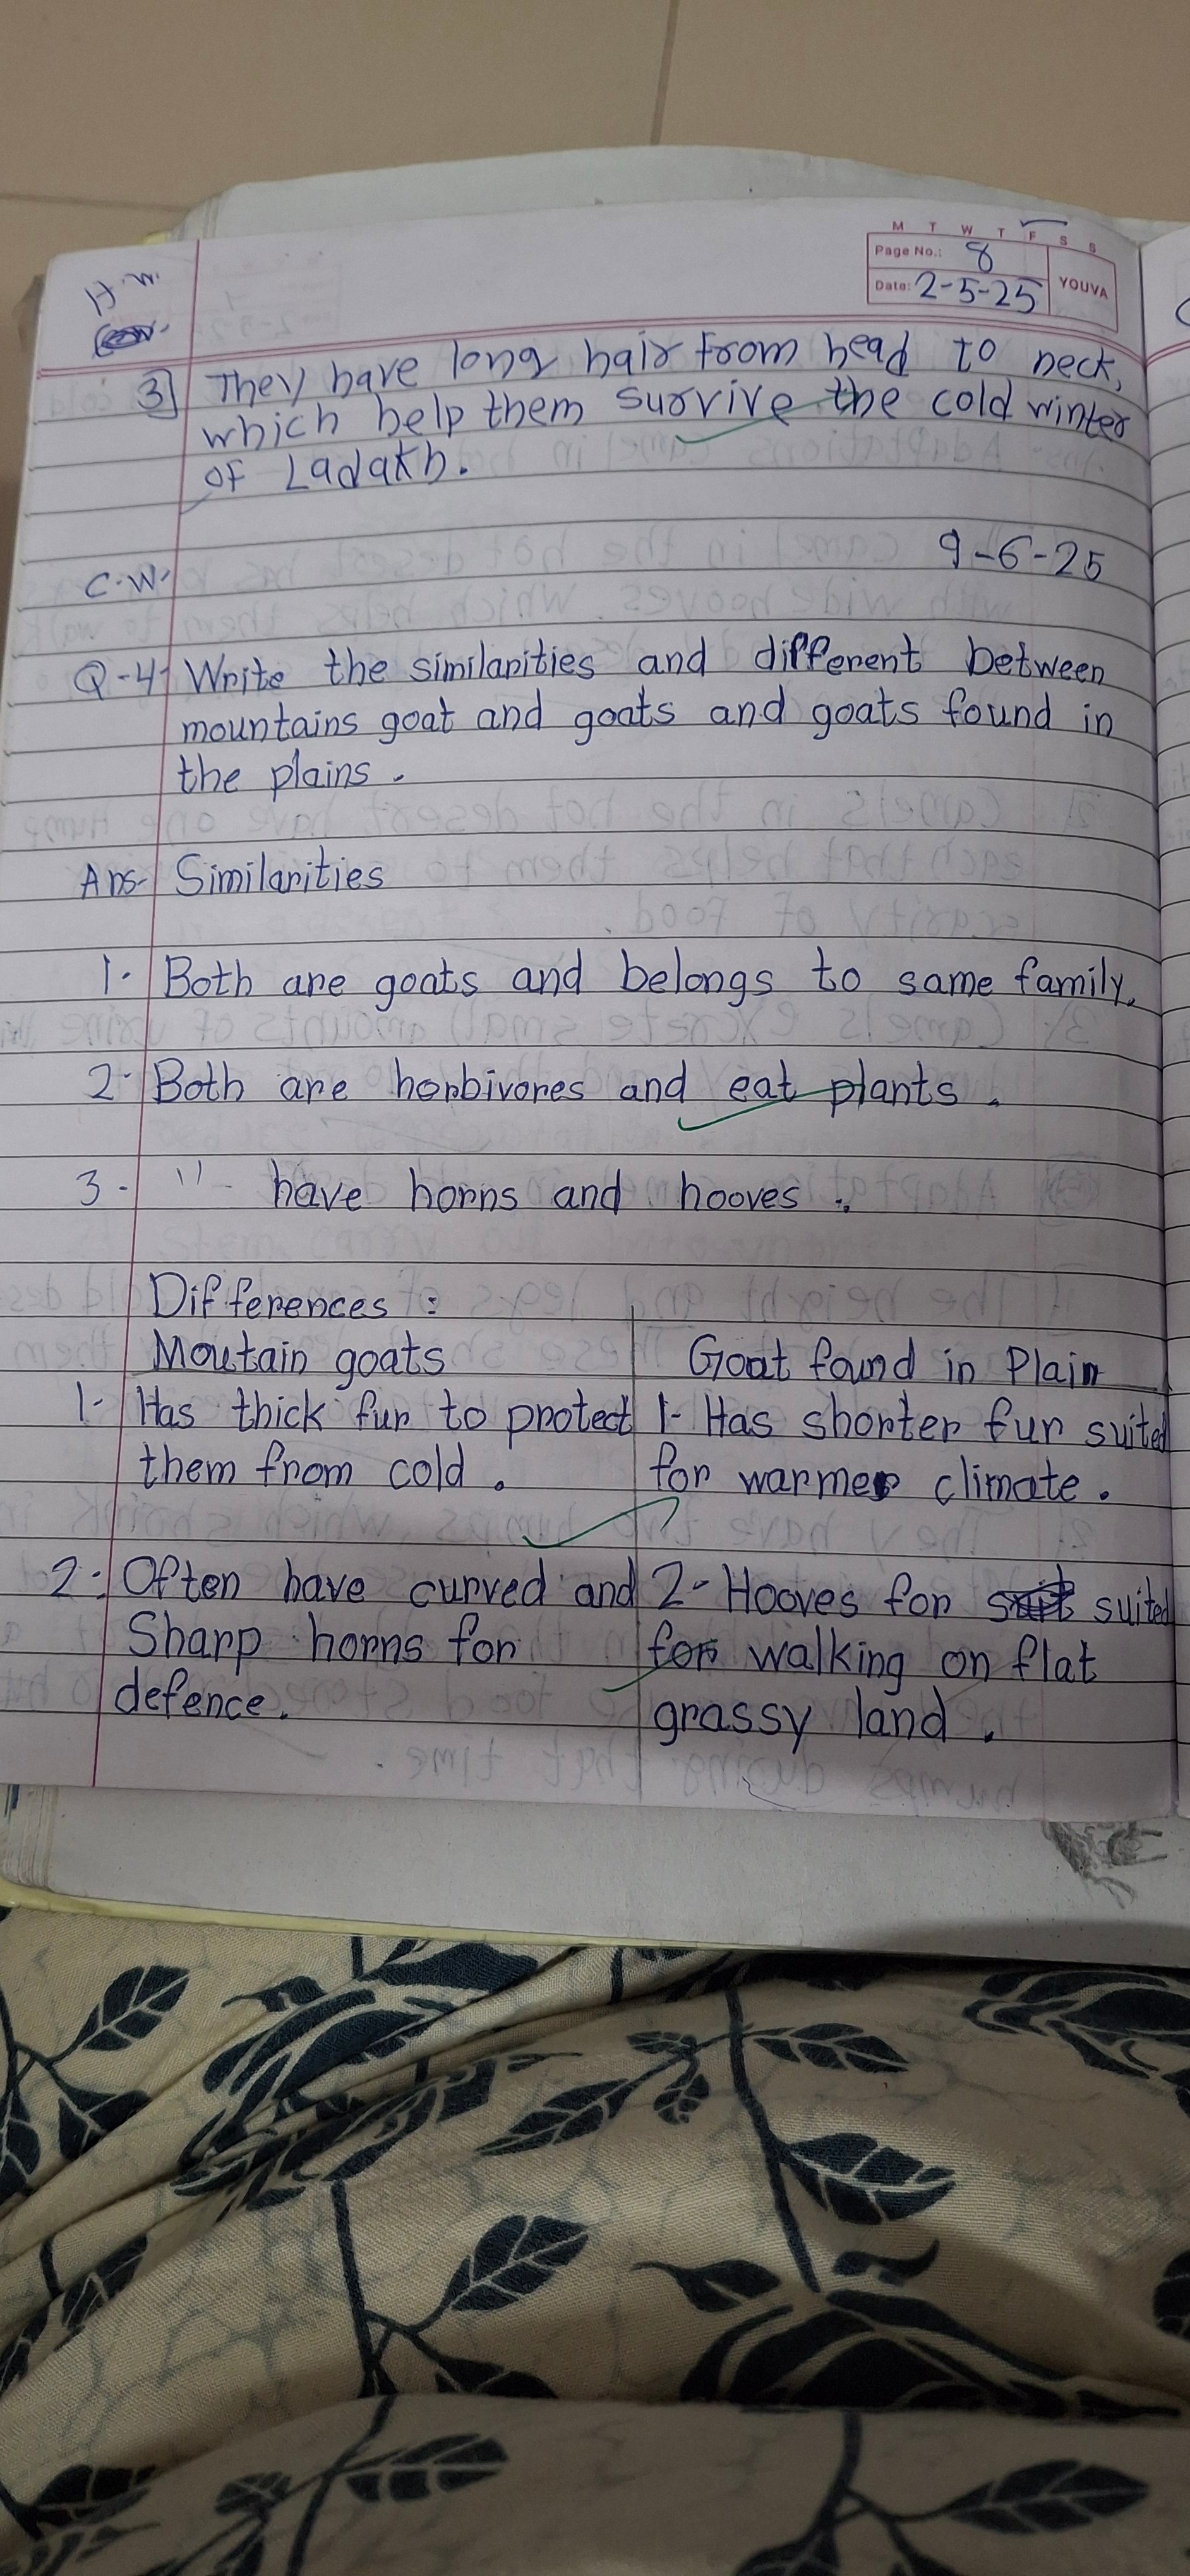 M T W T F S S
Page No.: 8
Date: 2-5-25
YOUVA
H.W.
3] They have long hair from head to neck,
which help them survive the cold winter
of Ladakh.
9-6-25
C.W.
Q-4- Write the similarities and different between
mountains goat and goats and goats found in
the plains.
Ans- Similarities
1. Both are goats and belongs to same family.
2. Both are herbivores and eat plants.
3. " - have horns and hooves.
Differences :
Moutain goats Goat found in Plain
1- Has thick fur to protect 1- Has shorter fur suited
them from cold. for warmer climate.
2. Often have curved and 2- Hooves for suited
Sharp horns for for walking on flat
defence. grassy land.